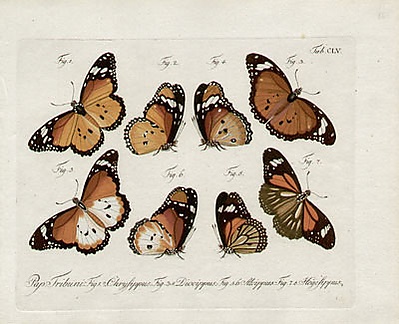 Tab. CLV.
Fig. 1. Fig. 2. Fig. 4. Fig. 3.
Fig. 5. Fig. 6. Fig. 8. Fig. 7.
Pap. Tribuni Fig. 1. Chrysippus. Fig. 3. Dioсippus. Fig. 5. 6. Alcippus. Fig. 7. 8. Hegesippus.